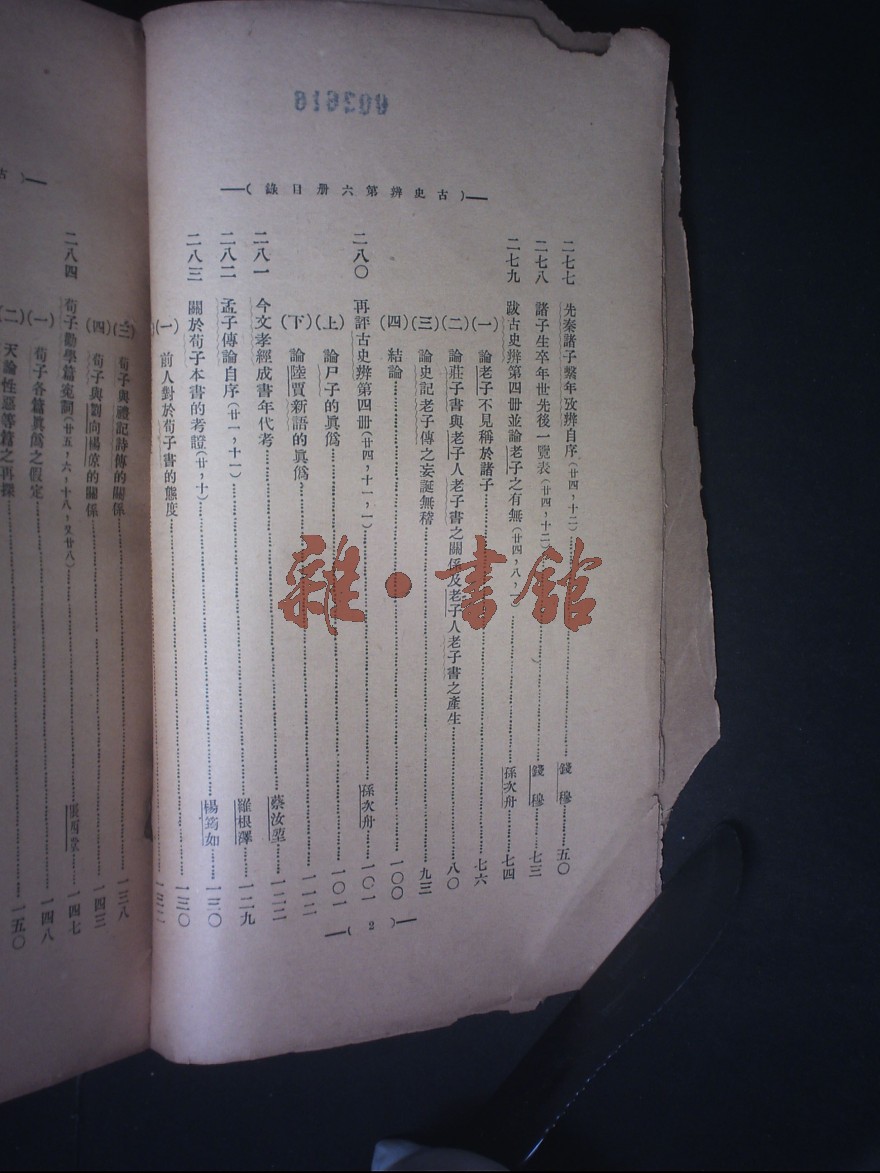 003616
—（古史辨第六册目錄）—
二七七 先秦諸子繫年攷辨自序（廿四，十二）……錢穆……五〇
二七八 諸子生卒年世先後一覽表（廿四，十二……錢穆……七三
二七九 跋古史辨第四册並論老子之有無（廿四，八，……孫次舟……七四
（一）論老子不見稱於諸子……七六
（二）論莊子書與老子人老子書之關係及老子人老子書之產生……八〇
（三）論史記老子傳之妄誕無稽……九三
（四）結論……一〇〇
二八〇 再評古史辨第四册（廿四，十一，一）……孫次舟……一〇一
（上）論尸子的眞僞……一〇一
（下）論陸賈新語的眞僞……一一二
二八一 今文孝經成書年代考……蔡汝堃……一二二
二八二 孟子傳論自序（廿一，十一）……羅根澤……一二九
二八三 關於荀子本書的考證（廿，十）……楊筠如……一三〇
（一）前人對於荀子書的態度……一三〇
一三二
—（2）—
（三）荀子與禮記詩傳的關係……一三八
（四）荀子與劉向楊倞的關係……一四三
二八四 荀子勸學篇寃詞（廿五，六，十八，又廿八）……張西堂……一四七
（一）荀子各篇眞僞之假定……一四八
（二）天論性惡等篇之再探……一五〇
—（古
雜·書館